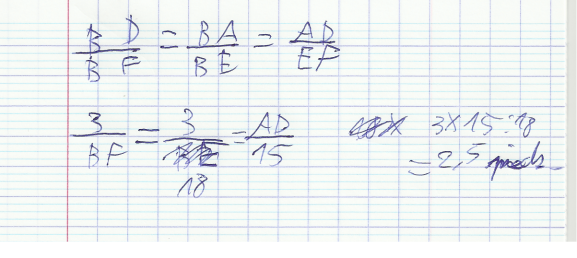 BD/BF = BA/BE = AD/EF
3/BF = 3/18 = AD/15 3X15:18
= 2,5 pieds